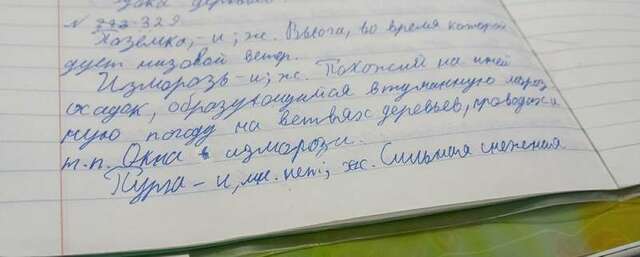 дока деревьев
N 329
Хаземка, -и; ж. Вьюга, во время которой
дует низовой ветер.
Изморозь -и; ж. Похожий на иней
осадок, образующийся в туманную мороз
ную погоду на ветвях деревьев, проводах и
т.п. Окна в измрози.
Пурга - и, мн. нет; ж. Сильная снежная